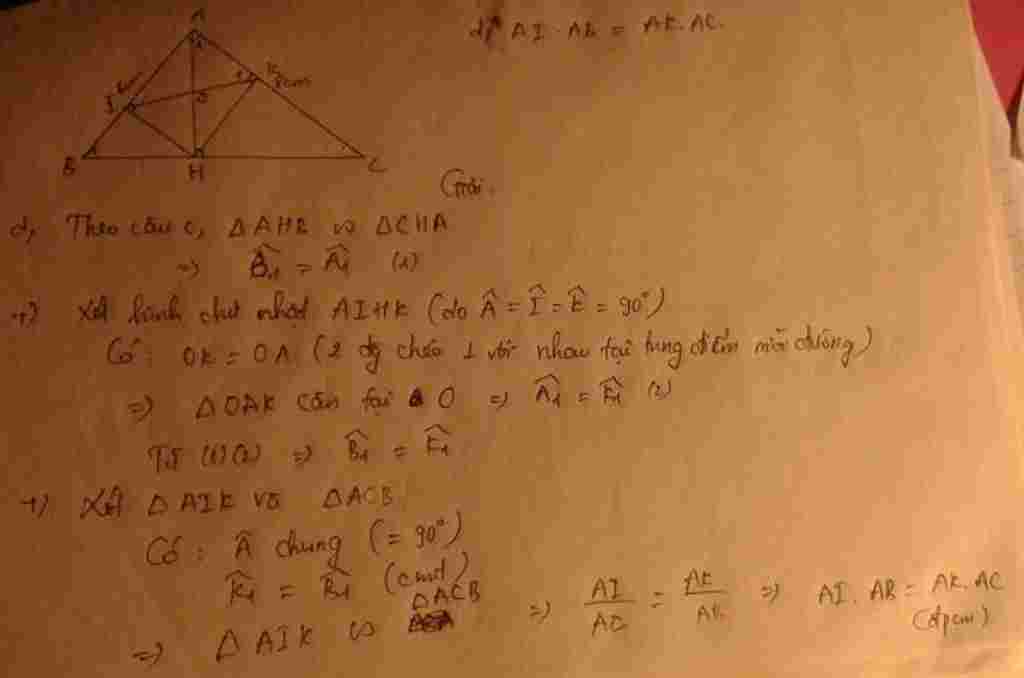 A
d, AI . AB = AK. AC.
6cm
K
8cm
I
O
B
H
C
Giải.
d, Theo câu c, ΔAHB ∽ ΔCHA
=> B̂1 = Â1 (1)
+) Xét hình chữ nhật AIHK (do Â = Î = K̂ = 90°)
Có: OK = OA (2 đg chéo ⊥ với nhau tại trung điểm mỗi đường)
=> ΔOAK cân tại O => Â1 = K̂1 (2)
Từ (1)(2) => B̂1 = K̂1
+) Xét ΔAIK và ΔACB
Có: Â chung (= 90°)
K̂1 = B̂1 (cmt)
=> ΔAIK ∽ ΔACB => AI/AC = AK/AB => AI. AB = AK. AC
(đpcm)